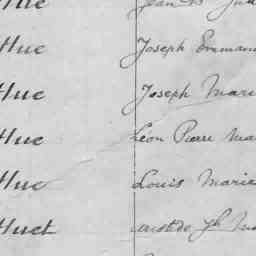 Hue
Hue Joseph Emman
Hue Joseph Mari
Hue Léon Pierre Ma
Hue Louis Marie
Huet